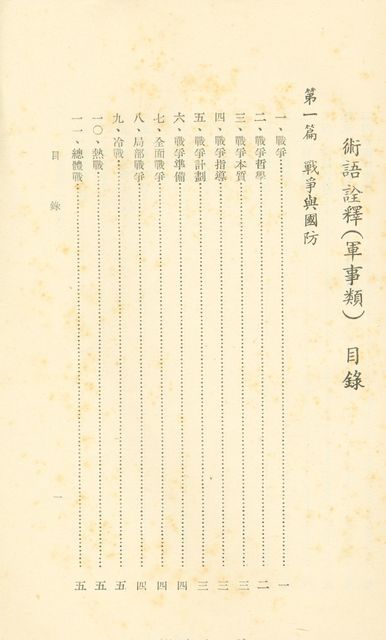 術語詮釋(軍事類) 目錄
第一篇 戰爭與國防
一、戰爭……一
二、戰爭哲學……二
三、戰爭本質……三
四、戰爭指導……三
五、戰爭計劃……三
六、戰爭準備……四
七、全面戰爭……四
八、局部戰爭……四
九、冷戰……五
一〇、熱戰……五
一一、總體戰……五
目錄
一